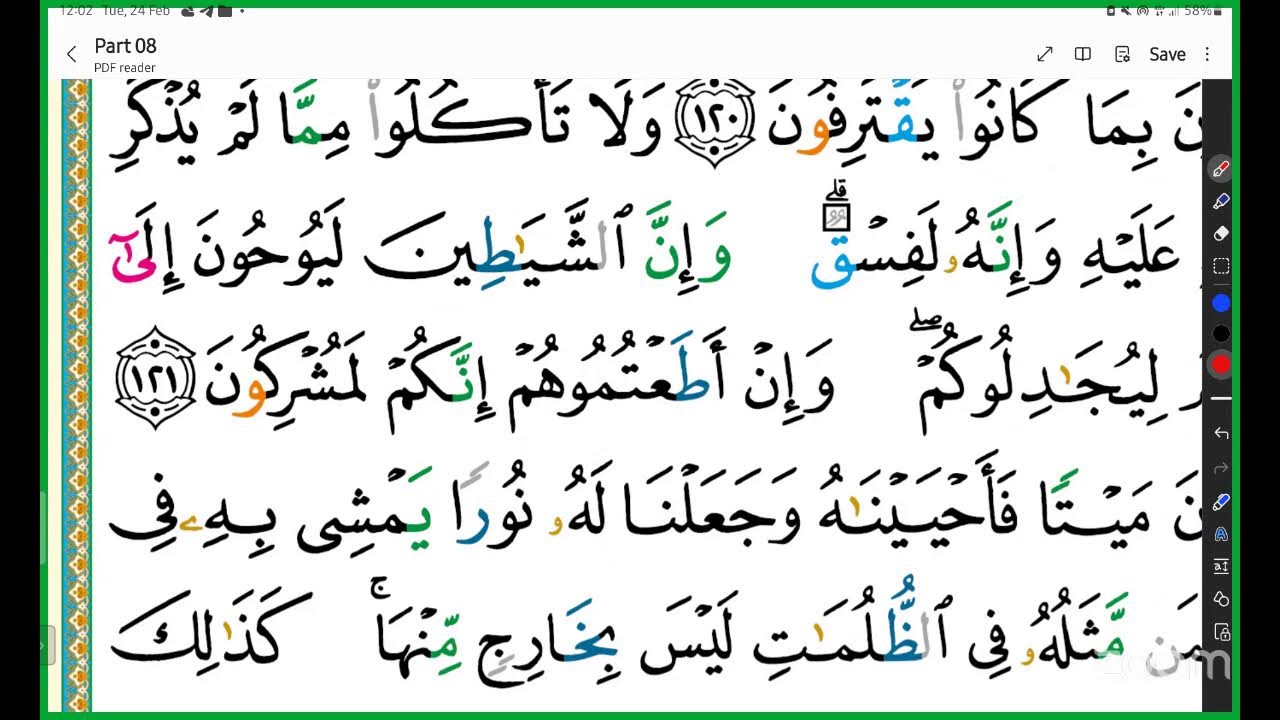 12:02 Tue, 24 Feb
58%
Part 08
PDF reader
Save
نَ بِمَا كَانُوا۟ يَقْتَرِفُونَ ١٢٠ وَلَا تَأْكُلُوا۟ مِمَّا لَمْ يُذْكَرِ
عَلَيْهِ وَإِنَّهُۥ لَفِسْقٌ ۗ وَإِنَّ ٱلشَّيَـٰطِينَ لَيُوحُونَ إِلَىٰٓ
لِيُجَـٰدِلُوكُمْ ۖ وَإِنْ أَطَعْتُمُوهُمْ إِنَّكُمْ لَمُشْرِكُونَ ١٢١
نَ مَيْتًا فَأَحْيَيْنَـٰهُ وَجَعَلْنَا لَهُۥ نُورًا يَمْشِى بِهِۦ فِى
مَن مَّثَلُهُۥ فِى ٱلظُّلُمَـٰتِ لَيْسَ بِخَارِجٍ مِّنْهَا ۚ كَذَٰلِكَ
zoom